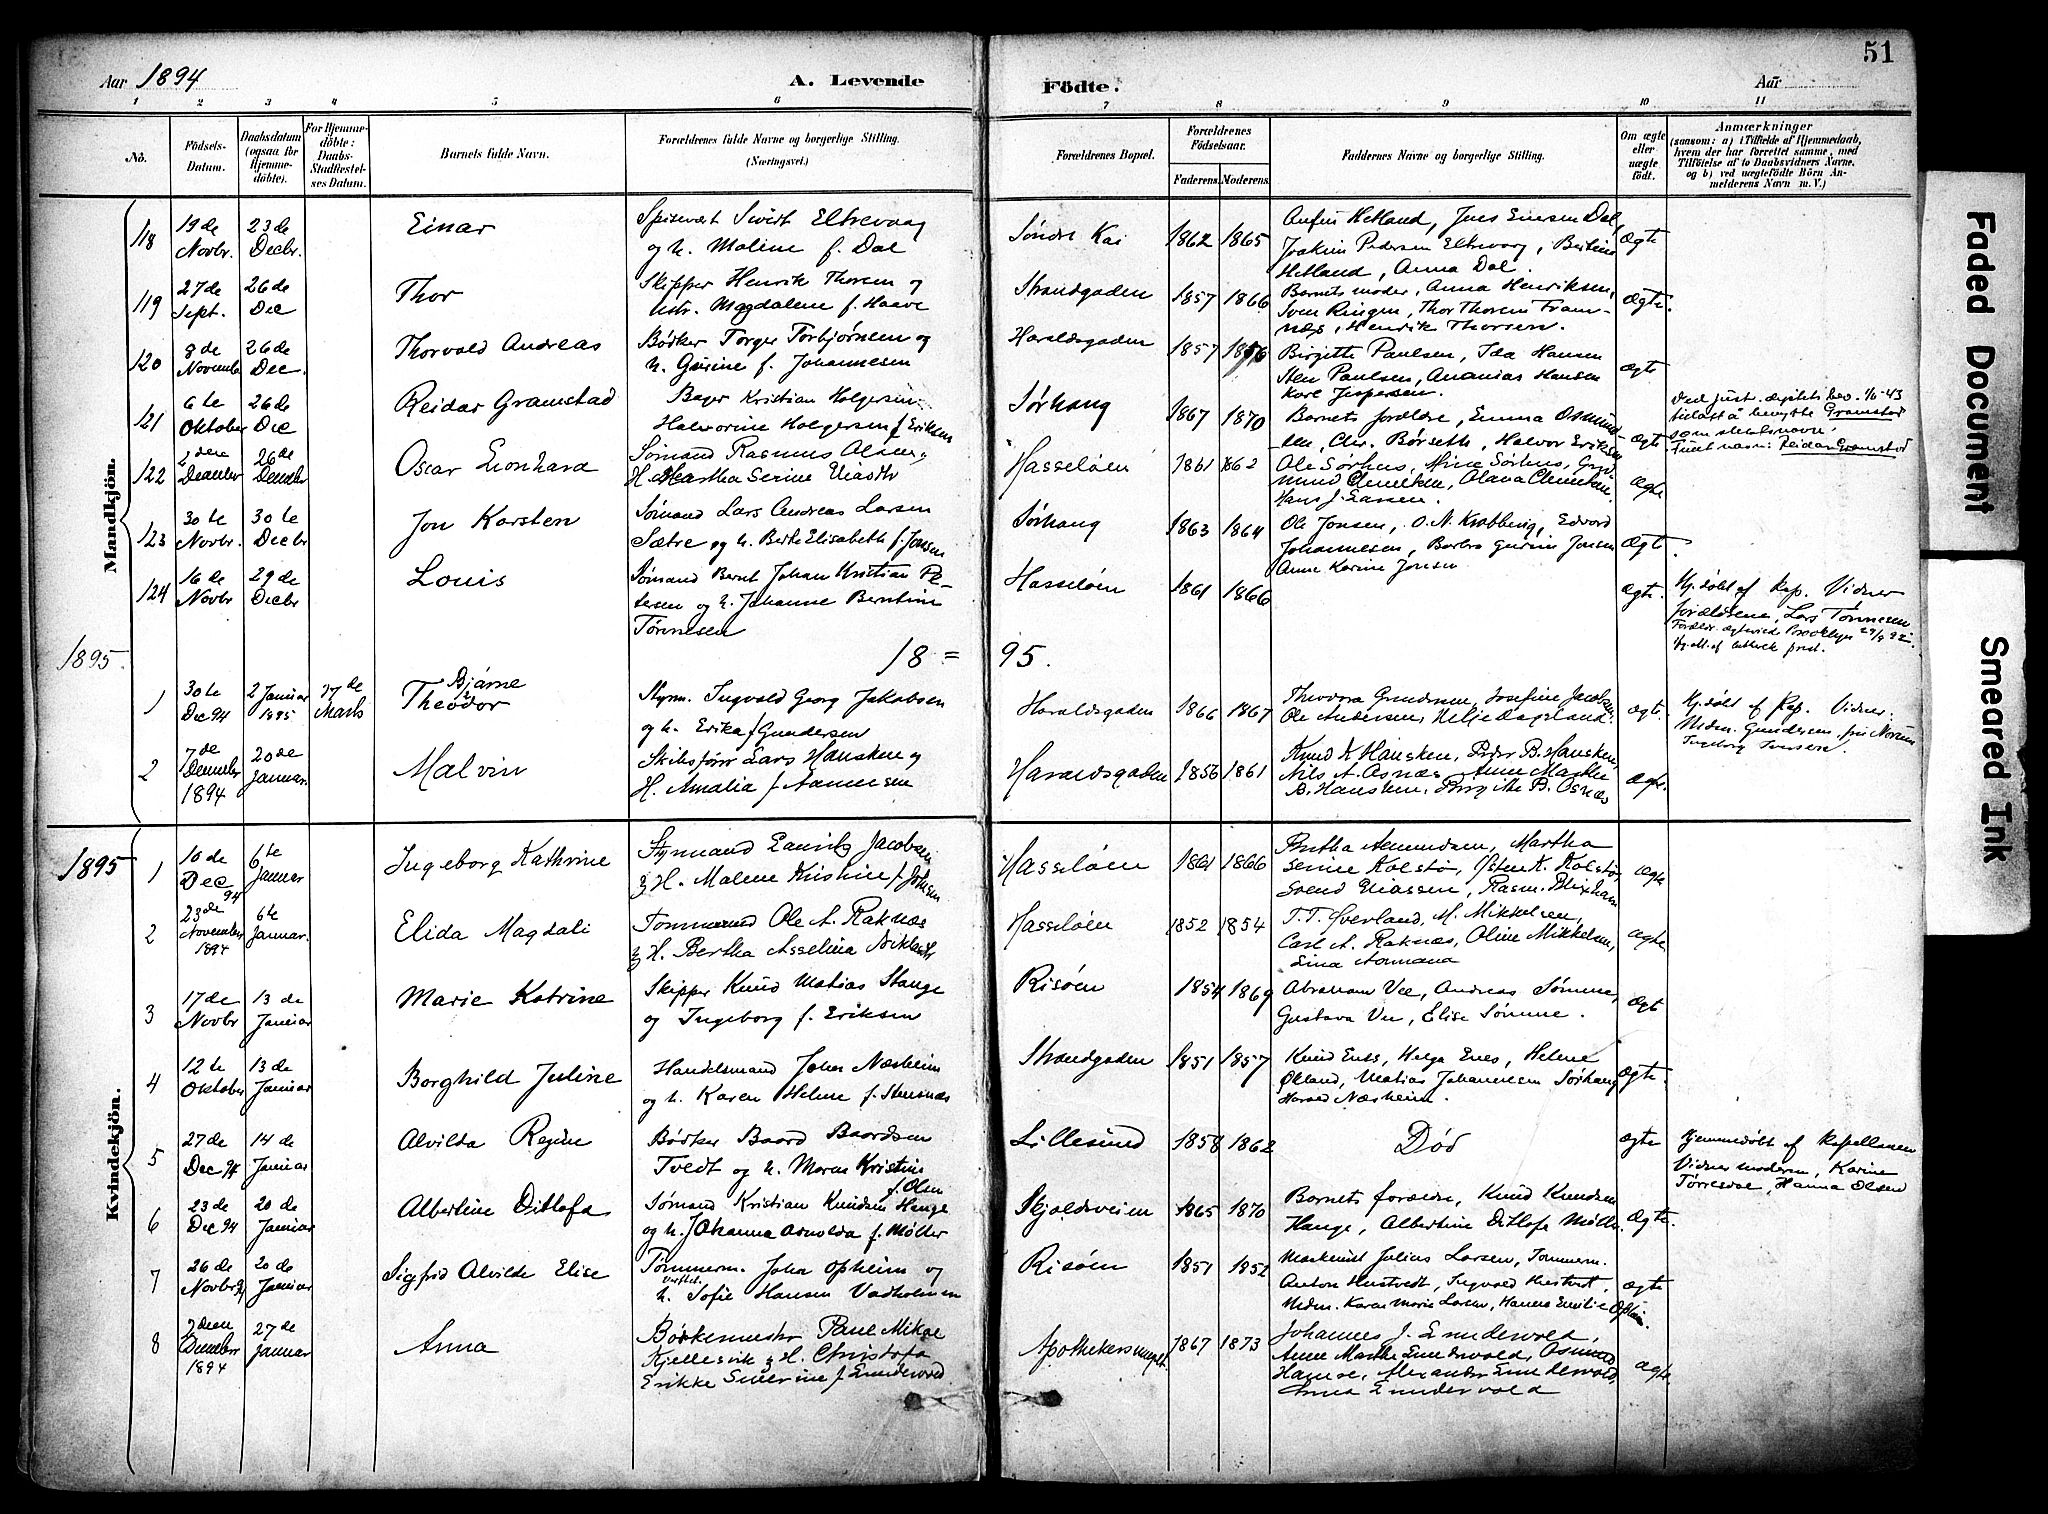 51
Aar 1894
A. Levende
Födte.
Aar
1 2 3 4 5 6 7 8 9 10 11
No.
Födsels-
Datum.
Daabsdatum
(ogsaa for
Hjemme-
döbte).
For Hjemme-
döbte:
Daabs-
Stadfæstel-
ses Datum.
Barnets fulde Navn.
Forældrenes fulde Navne og borgerlige Stilling.
(Næringsvei.)
Forældrenes Bopæl.
Forældrenes
Födselsaar.
Faderens. Moderens.
Faddernes Navne og borgerlige Stilling.
Om ægte
eller
uægte
födt.
Anmærkninger
(saasom: a) i Tilfælde af Hjemmedaab,
hvem der har forrettet samme, med
Tilföielse af to Daabsvidners Navne,
og b) ved uægtefödte Börn An-
melderens Navn m. V.)
Mandkjön.
118 19de Novbr. 23de Decbr. Einar
Spisevært Sivert Eltrevaag
og h. Malene f. Dal
Søndre Kai 1862 1865
Hetland, Jens Einersen Dal,
Joakim Pedersen Eltrevaag, Bertine
Hetland, Anna Dal.
Ægte
119 27de Sept. 26de Dec Thor
Skipper Henrik Thorsen og
Hstr. Magdalene f. Haave
Strandgaden 1857 1866
Barnets moder, Anna Henriksen,
Sven Ringen, Thor Thorsen Fram-
næs, Henrik Thorsen.
Ægte.
120 8de Novemb. 26de Dec. Thorvald Andreas
Bødker Torger Torbjørnsen og
h. Gurine f. Johannesen
Haraldsgaden 1857 1856
Birgitte Paulsen, Ida Hansen
Sten Paulsen, Ananias Hansen
Karl Jespersen.
Ægte
121 6te Oktober 26de Dec Reidar Gramstad
Bager Kristian Holgersen
Halvorine Holgersen f Eriksen
Sørhaug 1867 1870
Barnets forældre, Emma Osmund-
sen, Chr. Børseth, Halvor Eriksen
Ægte
Ved just. dep.tets bev. 1/6-43
tillatt å benytte Gramstad
som slektsnavn.
Fullt navn: Reidar Gramstad
122 December 26de December Oscar Leonhard
Sømand Rasmus Olsen,
H. Martha Serine
Hasseløen 1861 1862
Ole Sørhus, Mine Sørhus, Gud-
mund Clemetsen, Olava Clemetsen,
Hans J. Larsen.
Ægte
123 30te Novbr. 30te Decbr Jon Karsten
Sømand Lars Andreas Larsen
Sætre og h. Berte Elisabeth f. Jonsen
Sørhaug 1863 1864
Ole Jonsen, O. N. Krabbevig, Edvard
Johannesen, Barbro Gurine Jonsen
Anne Karine Jonsen
Ægte.
124 16de Novbr 29de Decbr Louis
Sømand Bernt Johan Kristian Pe-
tersen og h. Johanne Berntine
Tønnesen
Hasseløen 1861 1866
Ægte.
Hj.døbt af Kap. Vidner
forældrene, Lars Tønnesen
Forældr. ægteviede Brooklyn
1895.
18 = 95.
1 30te Dec 94 2 Januar 1895 17de Marts
Bjarne
Theodor
Styrm. Ingvald Georg Jakobsen
og h. Erika f Gundersen
Haraldsgaden 1866 1867
Theodora Gundersen, Josefine Jacobsen,
Ole Andersen, Helje Dagsland.
Ægte.
Hj.døbt af Kap. Vidner:
Mdm. Gundersen, fru Norum
Ingeborg Iversen.
2 7de December 1894 20de Januar. Malvin
Skibsfører Lars Hansken og
H. Amalia f Aanensen
Haraldsgaden 1856 1861
Knud K Hansken, Peder B. Hansken,
Nils A. Osnæs, Anne Marthe
B. Hansken, Birgitte B. Osnæs
Ægte.
Kvindekjön.
1895
1 10de Dec 94 6te Januar Ingeborg Kathrine
Styrmand Lauritz Jacobsen
& H. Malene Kristine f. Johnsen
Hasseløen 1861 1866
Bertha Amundsen, Martha
Serine Kolstø, Østen K. Kolstø,
Svend Eliassen, Rasm. Blixhavn
ægte
2 23de November 1894 6te Januar. Elida Magdali
Tømmermand Ole A. Raknæs
& H. Bertha Asseline
Hasseløen 1852 1854
T. T. Øverland, M. Mikkelsen,
Carl A. Raknæs, Oline Mikkelsen,
Lina
ægte
3 17de Novbr 13de Januar Marie Katrine
Skipper Knud Matias Stange
og Ingeborg f. Eriksen
Risøen 1854 1869
Abraham Vee, Andreas Sømme,
Gustava Vee, Elise Sømme.
Ægte
4 12te Oktober 13de Januar Borghild Juline
Handelsmand John Næsheim
og h. Karen Helene f. Stensnæs
Strandgaden 1851 1857
Knud Enes, Helga Enes, Helene
Økland, Matias Johannesen Sørhaug
Harald Næsheim.
Ægte.
5 27de Dec 94 14de Januar Alvilda Regine
Bødker Baard Baardsen
Tvedt og h. Maren Kristine
f. Olsen
Lillesund 1858 1862
Død
Ægte
Hjemmedøbt af Kapellanen
Vidner moderen, Karine
Tørresdal, Hanna Olsen
6 23de Dec 94 20de Januar Albertine Ditlofa
Sømand Kristian Knudsen Hauge
og h. Johanna Arnolda f. Møller
Skjoldsveien 1865 1870
Barnets forældre, Knud Knudsen
Hauge, Albertine Ditlofe Møller.
Ægte.
7 26de Novbr 94 20de Januar Sigfrid Alvilde Elise
Tømmerm. John Opheim og
h. Sofie Hansen Vadholmen
Risøen 1851 1852
Maskinist Julius Larsen, Tømmerm.
Anton Hustvedt, Ingvald Hustvet,
Mdm. Karen Marie Larsen, Hanna Emilie Opheim.
Ægte
8 December 1894 27de Januar Anna
Bødkermester Paul Mikal
Kjellesvik & H. Christofa
Erikke Severine f. Lundevold
Apothekersmuget 1867 1873
Johannes J. Lundevold,
Anne Marthe Lundevold, Osmund
Hamre, Alexander Lundevold,
Anna Lundevold
Ægte
Faded Document
Smeared Ink